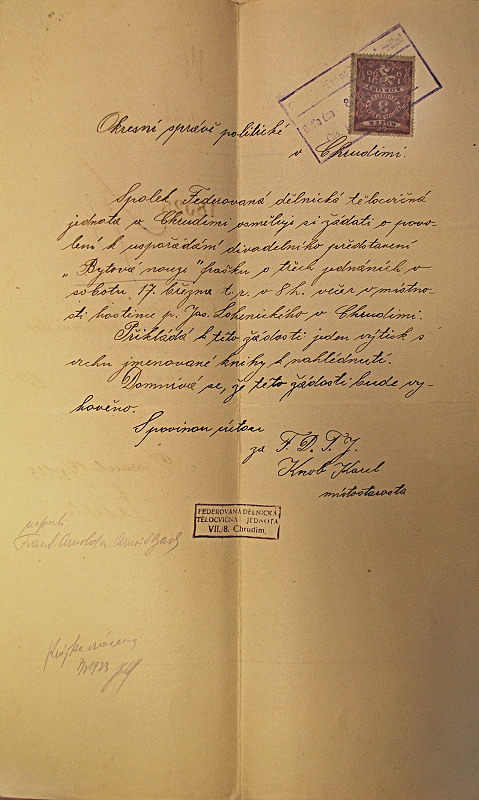 Okresní správě politické
v Chrudimi.
Spolek Federovaná dělnická tělocvičná
jednota v Chrudimi osměluje si žádati o povo-
lení k uspořádání divadelního představení
„Bytová nouze" frašku o třech jednáních v
sobotu 17. března t. r. v 8 h. večer v místno-
sti hostince p. Jos. v Chrudimi.
Přikládá k této žádosti jeden výtisk s
vrchu jmenované knihy k nahlédnutí.
Domnívá se, že této žádosti bude vy-
hověno.
S povinou úctou
za F. D. T. J.
Knob Karel
místostarosta
FEDEROVANÁ DĚLNICKÁ
TĚLOCVIČNÁ JEDNOTA
VII./8. Chrudim.
napsali:
Frant. Arnold a
1923